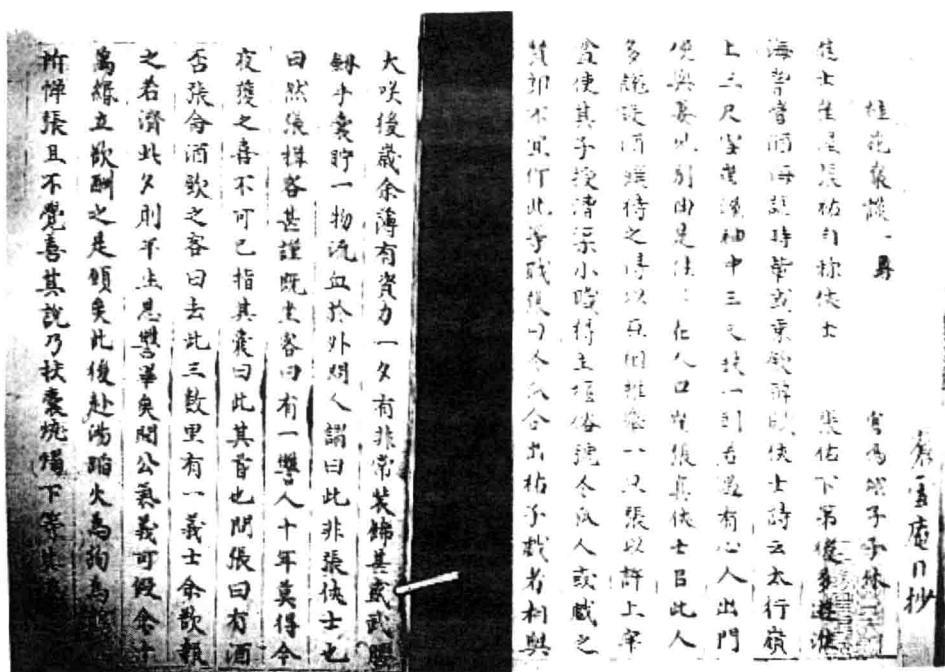 蒼雪庵日抄
桂苑叢談一 馮翊子子休
進士崔涯張祜自称侠士 張佑下第後多遊淮
海嘗嗜酒侮謔時輩或乘飲醉賦侠士詩云太行嶺
上三尺雪崔涯袖中三尺鉄一到若遇有心人出門
便與妻児別由是往〻在人口崔張真侠士 此人
多設酒饌待之得以互相推 一旦張以詩上牢
盆使其子授漕渠小職得主堰俗號冬瓜人或戲之
賢郎不宜作此等職張曰冬瓜合出祜子戲者相與
大咲後歲余薄有資力一夕有非常裝飾甚武腰
劒手囊貯一物流血於外問人謂曰此非張俠士也
曰然張揖客甚謹既坐客曰有一讐人十年莫得今
夜獲之喜不可已指其囊曰此其首也問張曰有酒
否張命酒飲之客曰去此三數里有一義士余欲報
之若濟此夕則平生恩讐畢矣聞公氣義可假余十
萬緡立欲酬之是願矣此後赴湯蹈火為狗為
所憚張且不覺喜其說乃扶囊燒燭下等其